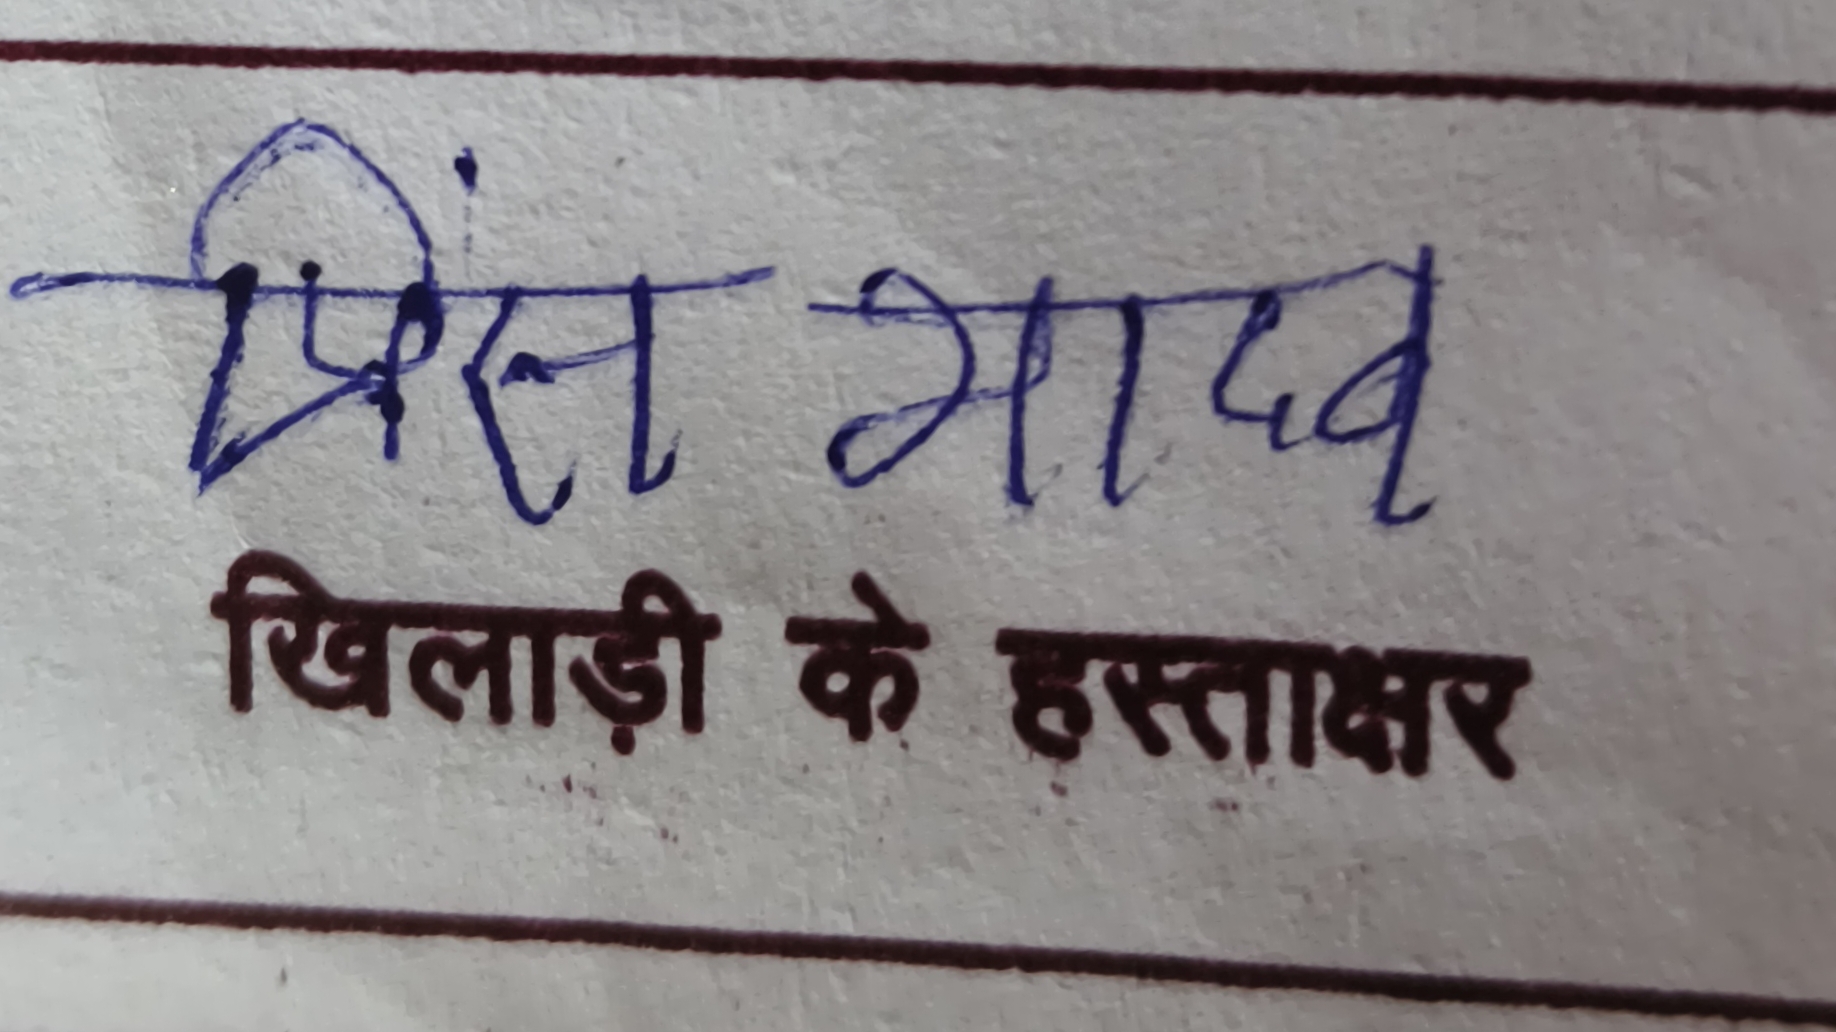 प्रिंस यादव
खिलाड़ी के हस्ताक्षर